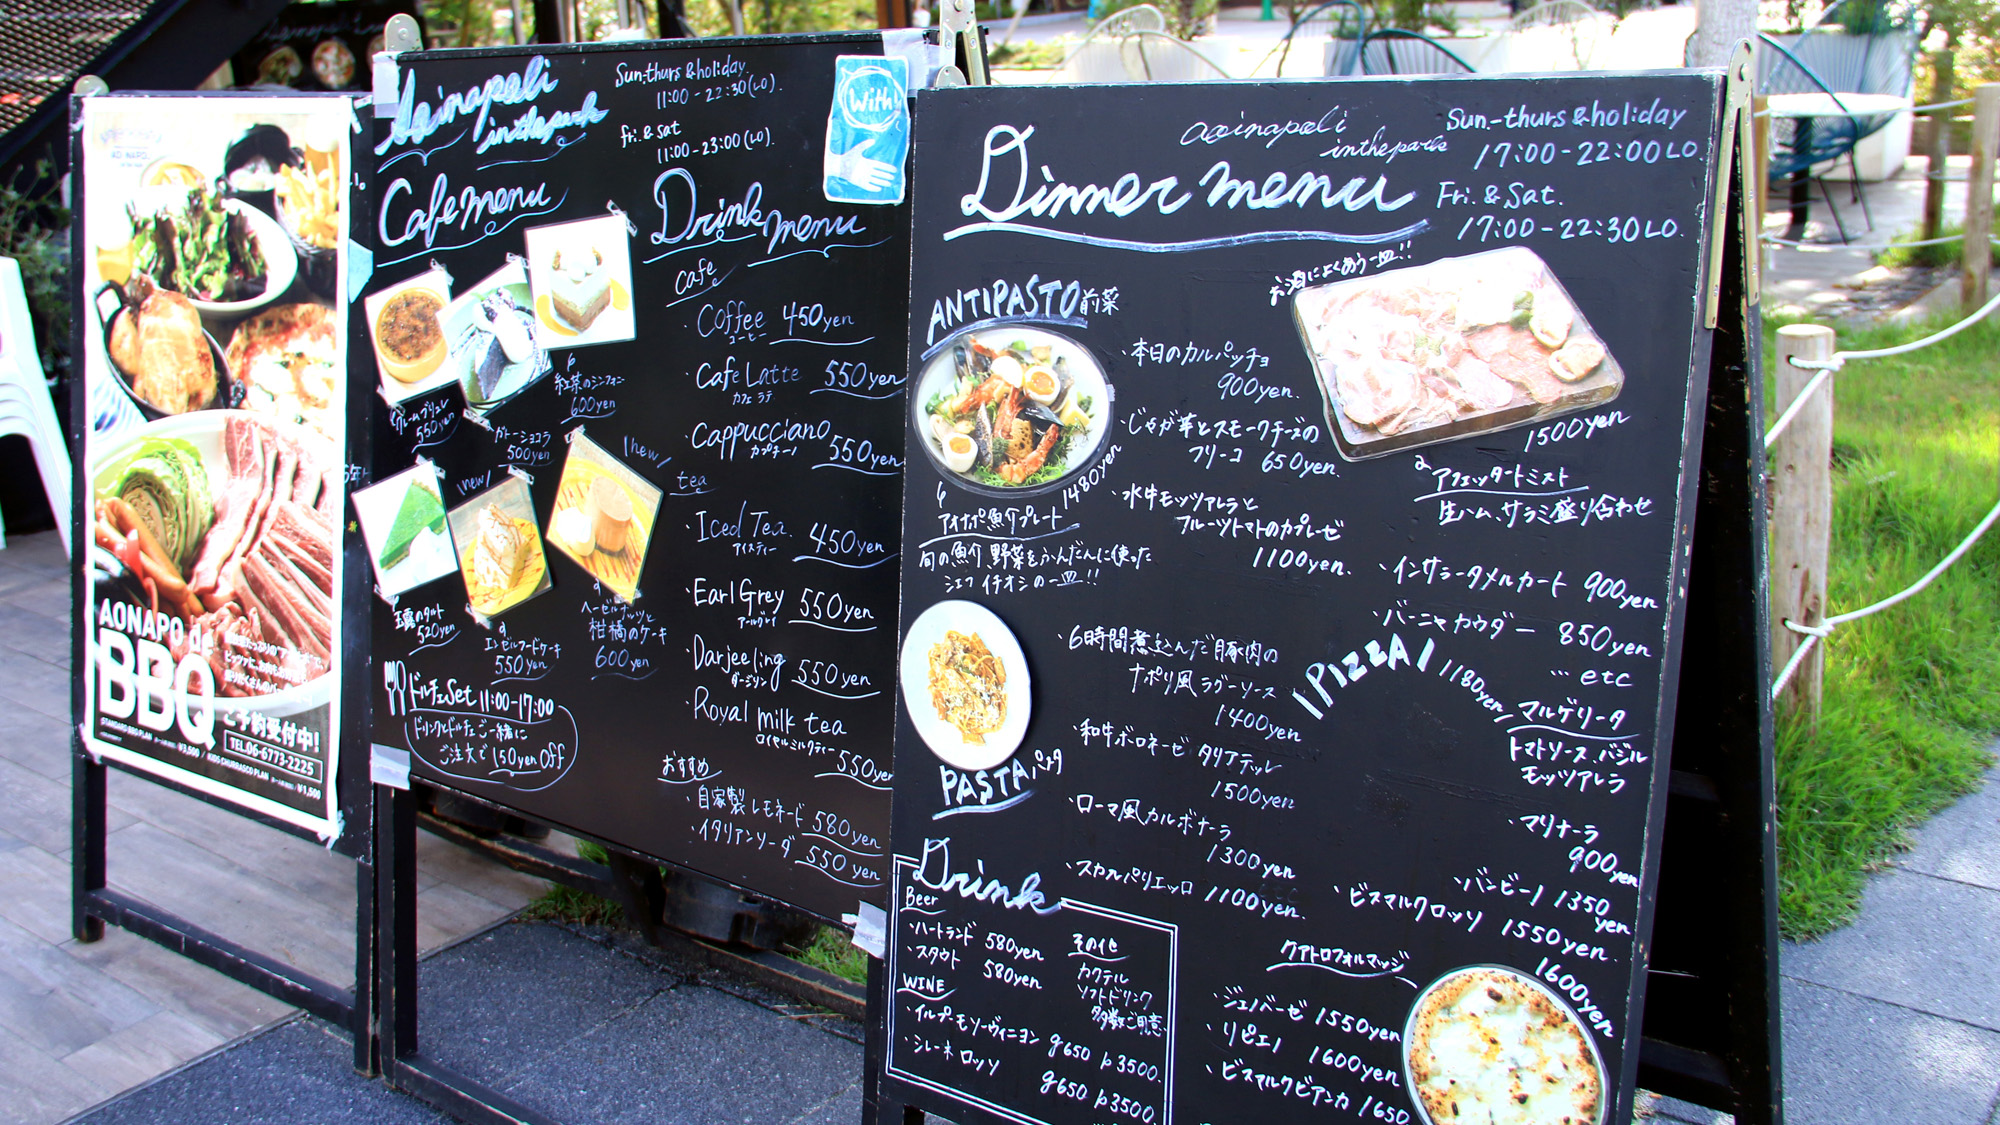 AONAPO de
BBQ
ご予約受付中!
STANDARD BBQ PLAN
¥3,500 / KIDS CHURRASCO PLAN
¥1,500
TEL.06-6773-2225
Aoinapoli
inthepark
Sun.-thurs & holiday
11:00-22:30(LO).
fri. & sat
11:00-23:00(LO).
With
Cafe menu
紅茶のシフォン
600yen
クレームブリュレ
550yen
ガトーショコラ
500yen
new
new
玉露のタルト
520yen
エンゼルフードケーキ
550yen
ヘーゼルナッツと
柑橘のケーキ
600yen
ドルチェSet 11:00-17:00
ドリンクとドルチェご一緒に
ご注文で150yen OFF
Drink menu
cafe
・Coffee 450yen
コーヒー
・Cafe Latte 550yen
カフェラテ
・Cappucciano 550yen
カプチーノ
tea
・Iced Tea. 450yen
アイスティー
・Earl Grey 550yen
アールグレイ
・Darjeeling 550yen
ダージリン
・Royal milk tea
ロイヤルミルクティー
550yen
おすすめ
・自家製レモネード 580yen
・イタリアンソーダ 550yen
aoinapoli
inthepark
Dinner menu
Sun.-thurs & holiday
17:00-22:00LO.
Fri. & Sat.
17:00-22:30LO.
ANTIPASTO前菜
1480yen
アオナポ魚介プレート
旬の魚介、野菜をふんだんに使った
シェフイチオシの一皿!!
・本日のカルパッチョ
900yen.
・じゃが芋とスモークチーズの
フリーコ 650yen.
・水牛モッツァレラと
フルーツトマトのカプレーゼ
1100yen.
お酒によくあう一皿!!
1500yen
アフェッタートミスト
生ハム、サラミ盛り合わせ
・インサラータメルカート 900yen
・バーニャカウダー 850yen
…etc
PASTA パスタ
・6時間煮込んだ豚肉の
ナポリ風ラグーソース
1400yen
・和牛ボロネーゼ タリアテッレ
1500yen
・ローマ風カルボナーラ
1300yen
・スカルパリエッロ 1100yen.
PIZZA
1180yen
マルゲリータ
トマトソース、バジル
モッツアレラ
・マリナーラ
900yen
・バンビーノ 1350
yen
・ビスマルクロッソ 1550yen.
クアトロフォルマッジ
1600yen
・ジェノベーゼ 1550yen
・リピエノ 1600yen
・ビスマルクビアンカ 1650
Drink
Beer
・ハートランド 580yen
・スタウト 580yen
WINE
・イルプーモソーヴィニヨン g650 b3500.
・シレーネロッソ
g650 b3500.
その他
カクテル
ソフトドリンク
多数ご用意